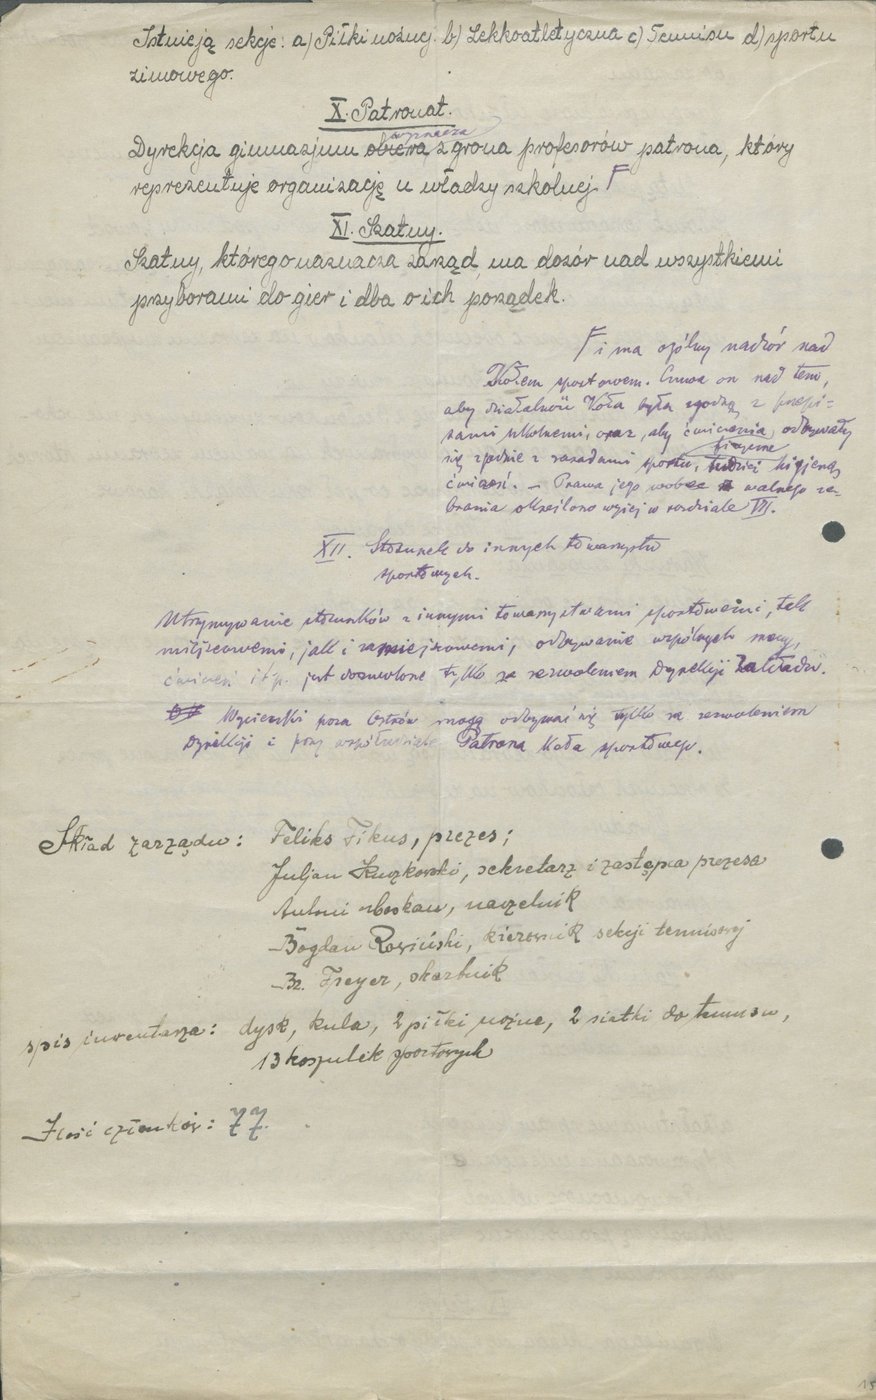 Istnieją sekcje: a) Piłki nożnej b) Lekkoatletyczna c) Tennisu d) sportu
zimowego.
X. Patronat.
wyznacza
Dyrekcja gimnazjum obiera z grona profesorów patrona, który
reprezentuje organizację u władzy szkolnej. F
XI. Szatny.
Szatny, którego naznacza zarząd, ma dozór nad wszystkiemi
przyborami do gier i dba o ich porządek.
F i ma ogólny nadzór nad
Kołem sportowem. Czuwa on nad tem,
aby działalność Koła była zgodną z przepi-
sami szkolnemi, oraz, aby ćwiczenia odbywały
się zgodnie z zasadami sportu, tudzież higjeną
ćwiczeń. – Prawa jego wobec walnego ze-
brania określono wyżej w rozdziale VII.
XII. Stosunek do innych towarzystw
sportowych.
Utrzymywanie stosunków z innymi towarzystwami sportowemi, tak
miejscowemi, jak i zamiejscowemi, odbywanie wspólnych
ćwiczeń itp. jest dozwolone tylko za zezwoleniem Dyrekcji Zakładu.
Wycieczki poza Ostrów mogą odbywać się tylko za zezwoleniem
Dyrekcji i przy współudziale Patrona Koła sportowego.
Skład zarządu: Feliks Fikus, prezes;
Juljan Kuczkowski, sekretarz i zastępca prezesa
Antoni, naczelnik
Bogdan Rowiński, kierownik sekcji tennisowej
Br. Freyer, skarbnik
spis inwentarza: dysk, kula, 2 piłki nożne, 2 siatki do tennisu,
13 koszulek sportowych
Ilość członków: 77.
15